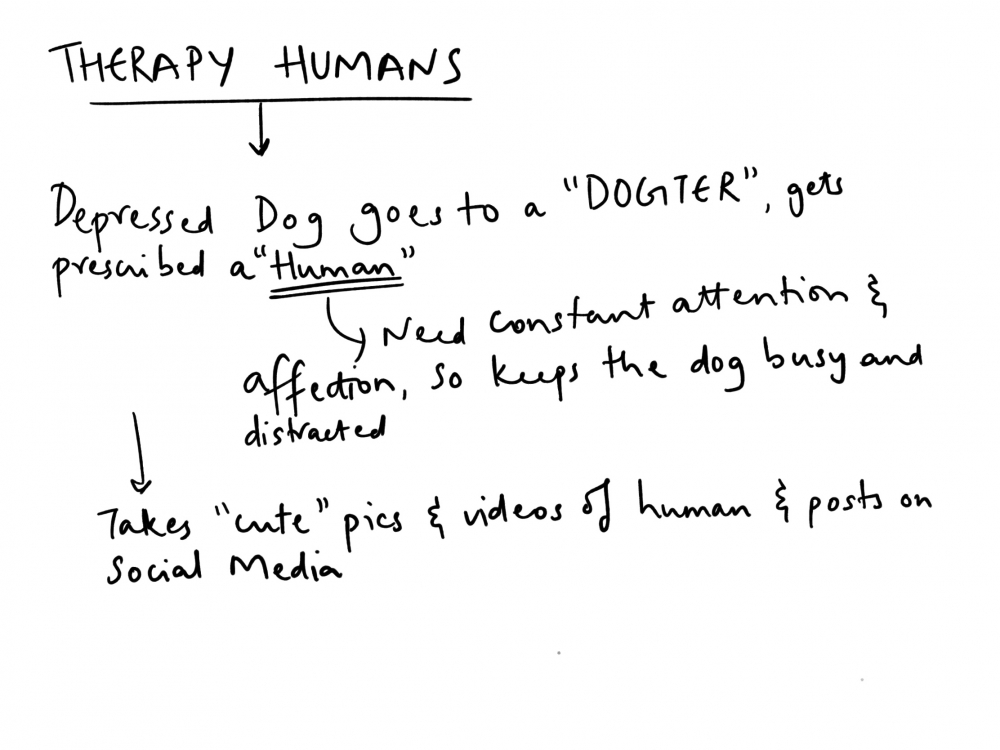 THERAPY HUMANS
Depressed Dog goes to a "DOGTER", gets
prescribed a "Human"
Need constant attention &
affection, so keeps the dog busy and
distracted
Takes "cute" pics & videos of human & posts on
Social Media